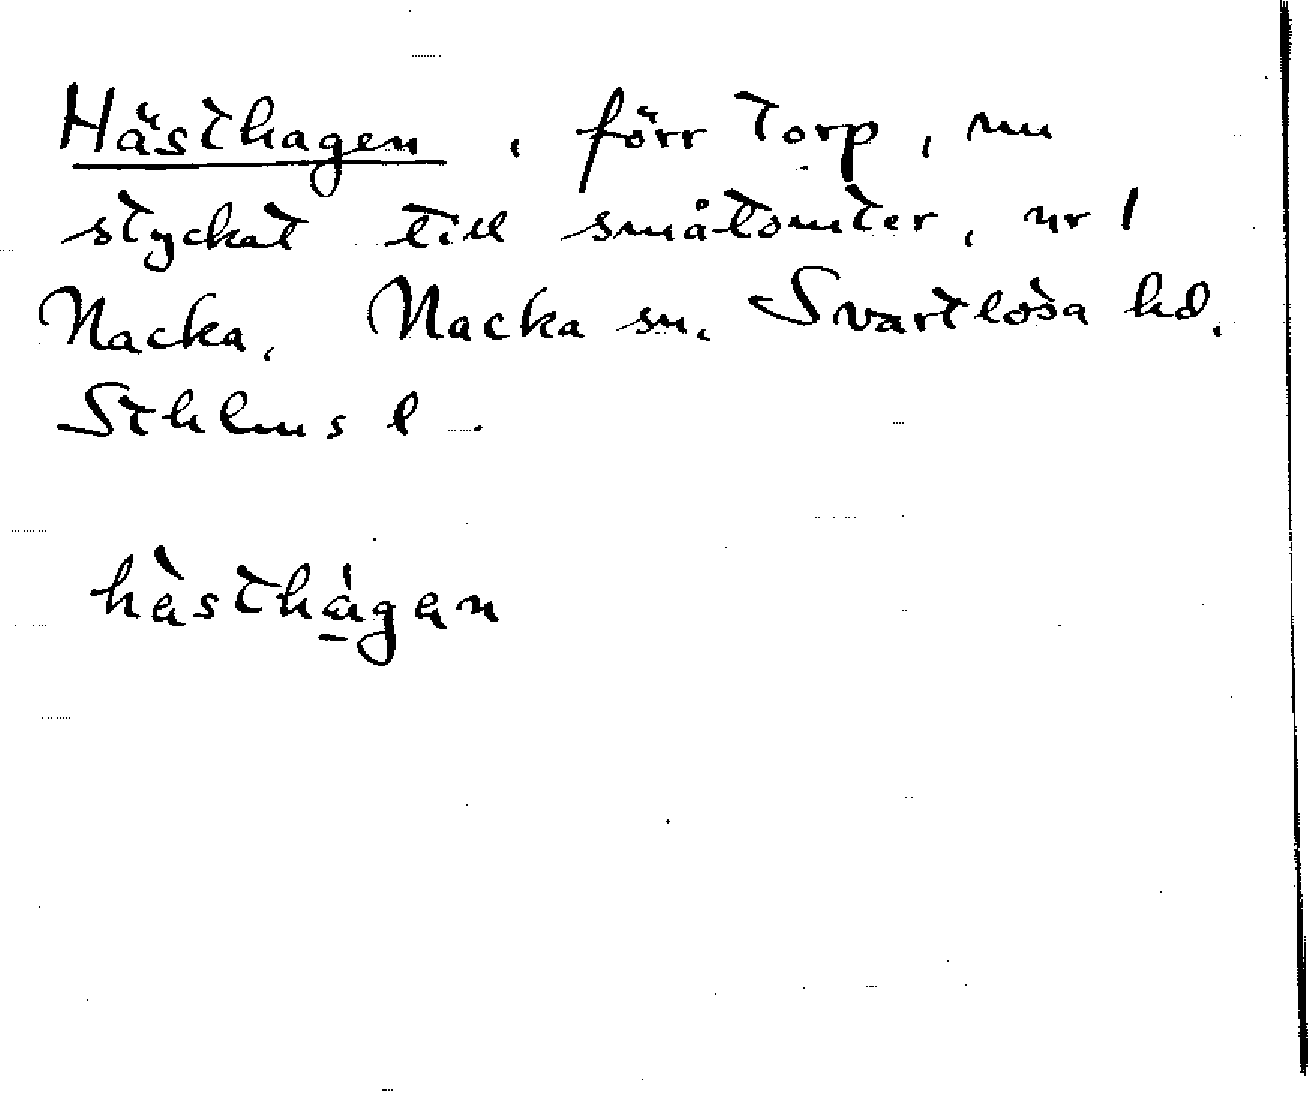 Hästhagen, förr torp, nu
styckat till småtomter, ur 1
Nacka, Nacka sn. Svartlösa hd.
Sthlms l.
hàsthágan